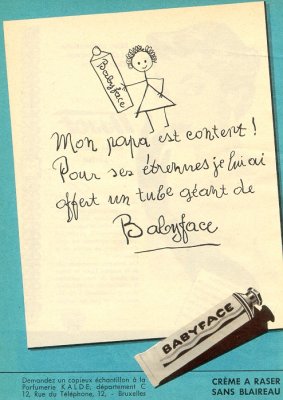 Babyface
Mon papa est content !
Pour ses étrennes je lui ai
offert un tube géant de
Babyface
BABYFACE
Demandez un copieux échantillon à la
Parfumerie KALDE, département C
12, Rue du Téléphone, 12, - Bruxelles
CRÈME A RASER
SANS BLAIREAU